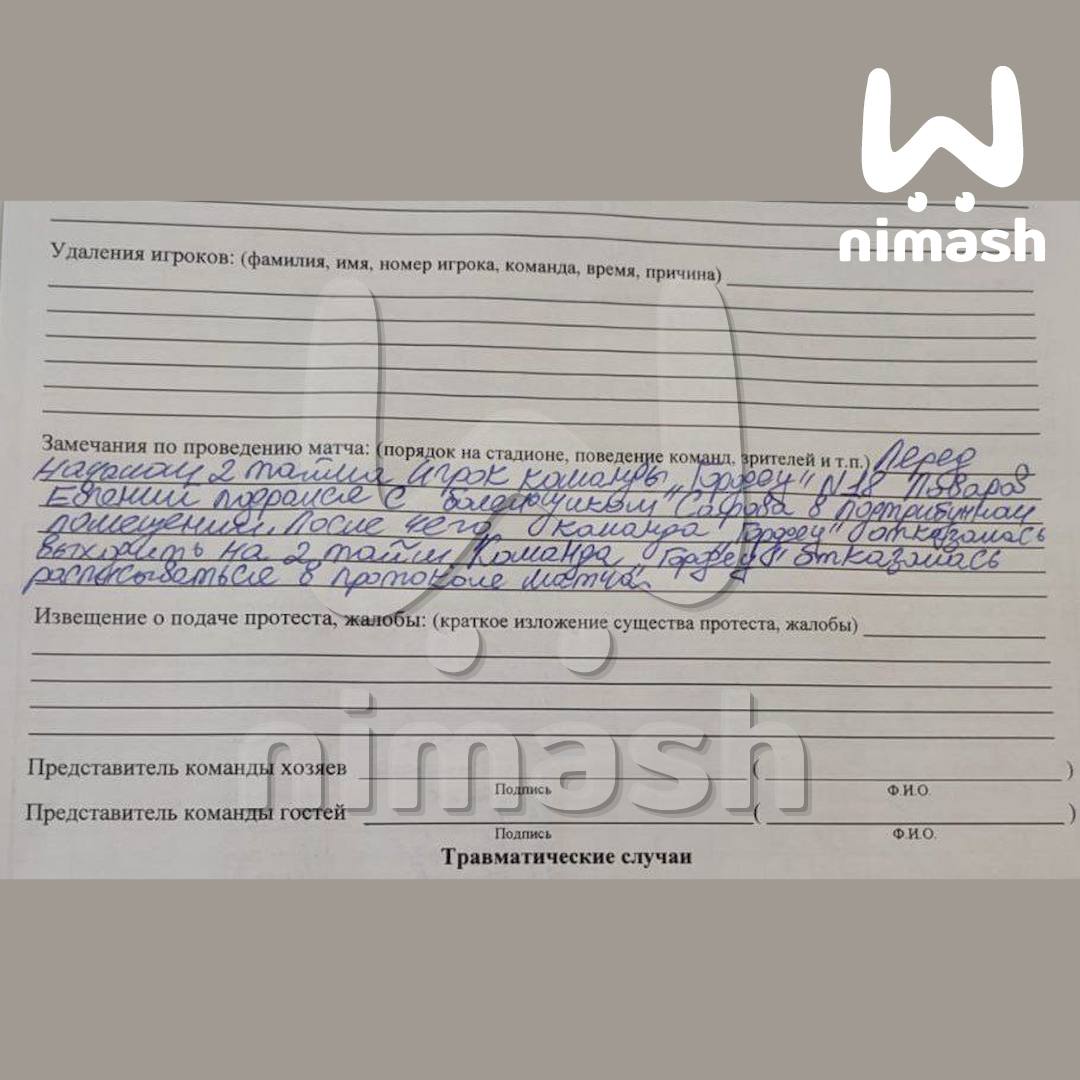 nimash
Удаления игроков: (фамилия, имя, номер игрока, команда, время, причина)
Замечания по проведению матча: (порядок на стадионе, поведение команд, зрителей и т.п.) Перед
началом 2 тайма игрок команды "Торфец" N18
Евгений подрался с болельщиком в подтрибунном
помещении. После чего команда отказалась
выходить на 2 тайм. Команда отказалась
расписываться в протоколе матча.
Извещение о подаче протеста, жалобы: (краткое изложение существа протеста, жалобы)
nimash
Представитель команды хозяев ( )
Подпись Ф.И.О.
Представитель команды гостей ( )
Подпись Ф.И.О.
Травматические случаи